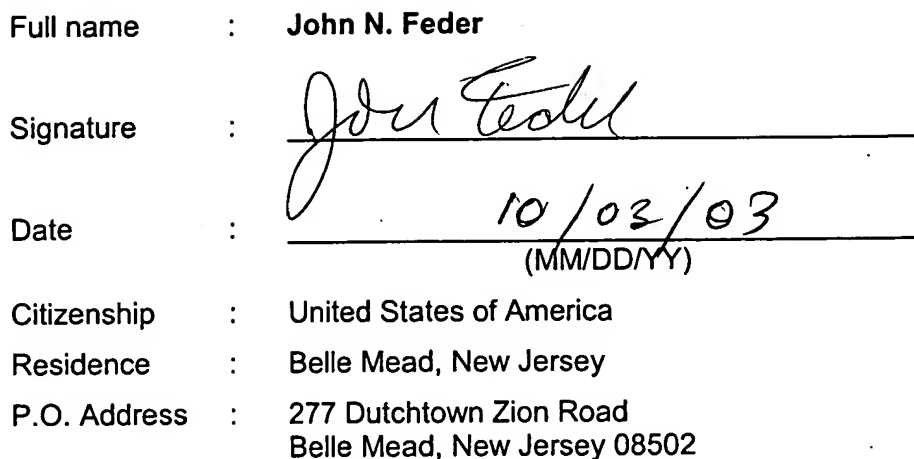 Full name : John N. Feder
Signature : John Feder
Date : 10/03/03
(MM/DD/YY)
Citizenship : United States of America
Residence : Belle Mead, New Jersey
P.O. Address : 277 Dutchtown Zion Road
Belle Mead, New Jersey 08502